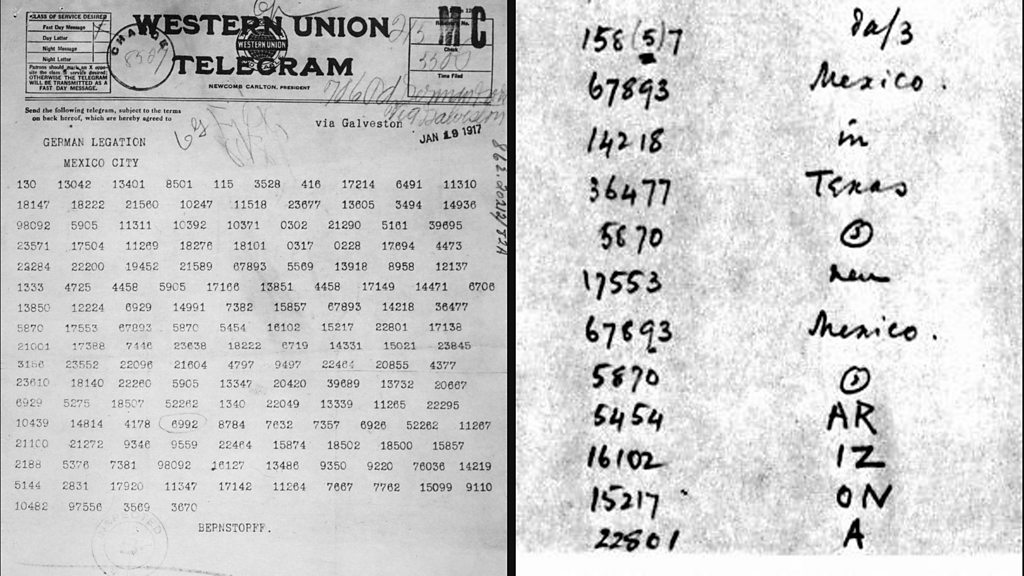 CLASS OF SERVICE DESIRED
Fast Day Message
Day Letter
Night Message
Night Letter
Patrons should mark an X oppo-
site the class of service desired;
OTHERWISE THE TELEGRAM
WILL BE TRANSMITTED AS A
FAST DAY MESSAGE.
CHARGE
WESTERN UNION
WESTERN UNION
TELEGRAM
NEWCOMB CARLTON, PRESIDENT
Check
Time Filed
Send the following telegram, subject to the terms
on back hereof, which are hereby agreed to
via Galveston
JAN 19 1917
GERMAN LEGATION
MEXICO CITY
130 13042 13401 8501 115 3528 416 17214 6491 11310
18147 18222 21560 10247 11518 23677 13605 3494 14936
98092 5905 11311 10392 10371 0302 21290 5161 39695
23571 17504 11269 18276 18101 0317 0228 17694 4473
22284 22200 19452 21589 67893 5569 13918 8958 12137
1333 4725 4458 5905 17166 13851 4458 17149 14471 6706
13850 12224 6929 14991 7382 15857 67893 14218 36477
5870 17553 67893 5870 5454 16102 15217 22801 17138
21001 17388 7446 23638 18222 6719 14331 15021 23845
3156 23552 22096 21604 4797 9497 22464 20855 4377
23610 18140 22260 5905 13347 20420 39689 13732 20667
6929 5275 18507 52262 1340 22049 13339 11265 22295
10439 14814 4178 6992 8784 7632 7357 6926 52262 11267
21100 21272 9346 9559 22464 15874 18502 18500 15857
2188 5376 7381 98092 16127 13486 9350 9220 76036 14219
5144 2831 17920 11347 17142 11264 7667 7762 15099 9110
10482 97556 3569 3670
BERNSTORFF.
158(5)7
67893 Mexico.
14218 in
36477 Texas
5870
17553 neu
67893 Mexico.
5870
5454 AR
16102 IZ
15217 ON
22801 A